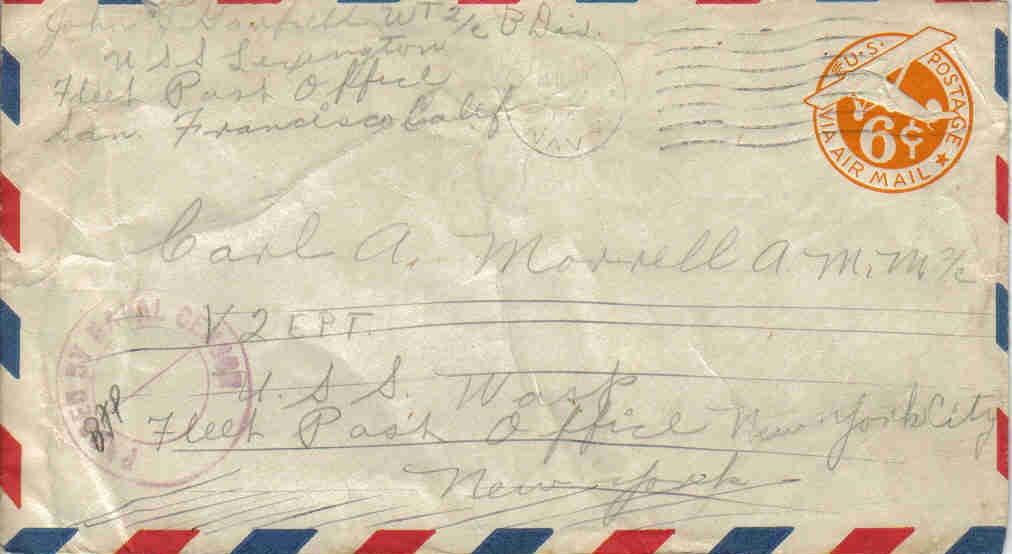 John WT 2/c B Div.
U S S Lexington
Fleet Post Office
San Francisco Calif
U.S. POSTAGE
6¢
VIA AIR MAIL
Carl A. Morrell A.M.M. 1/c
V 2
U.S.S. Wasp
Fleet Post Office New York City
New York
PASSED BY NAVAL CENSOR